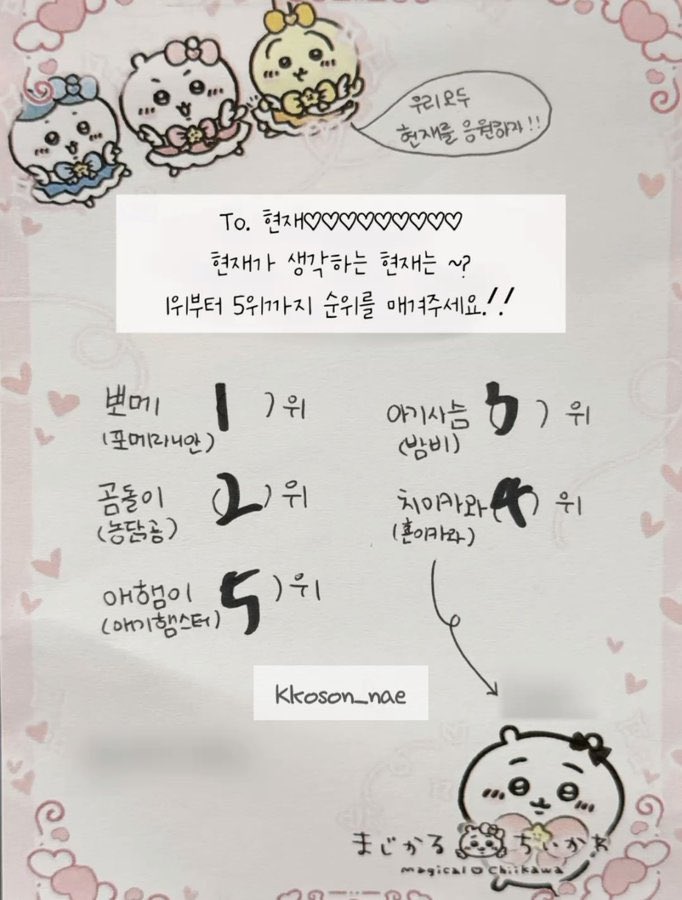 우리모두
현재를 응원하자!!
To. 현재♡♡♡♡♡♡♡♡♡
현재가 생각하는 현재는 ~?
1위부터 5위까지 순위를 매겨주세요!!
뽀메 1 ) 위
(포메라니안)
곰돌이 (2) 위
(농담곰)
애햄이 5 ) 위
(애기햄스터)
아기사슴 3 ) 위
(밤비)
치이카와 (4) 위
(혼이카와)
Kkoson_nae
まじかる ちいかわ
magical chiikawa